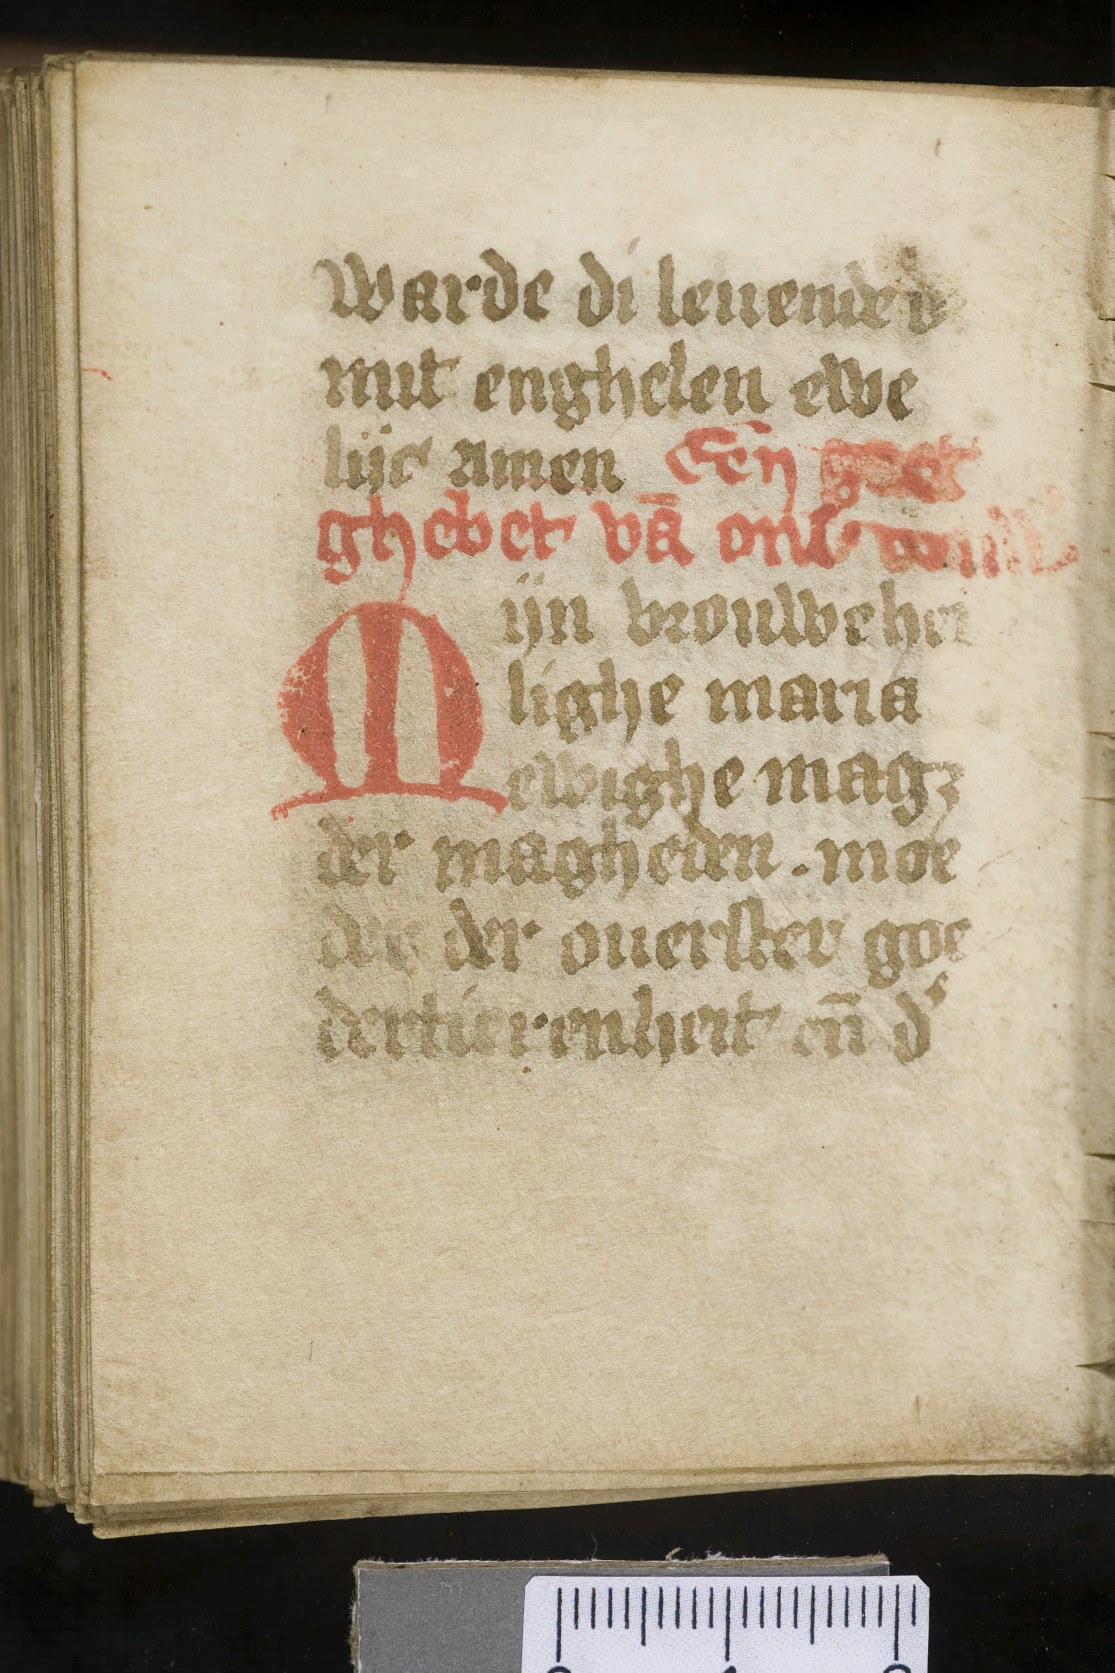 warde di leuende
mit enghelen ewe
lijc amen Een
ghebet vā onſ
Mijn vrouwe hei
lighe maria
ewighe magꝫ
der magheden . moe
der der ouerſter goe
dertierenheit en̄ d'